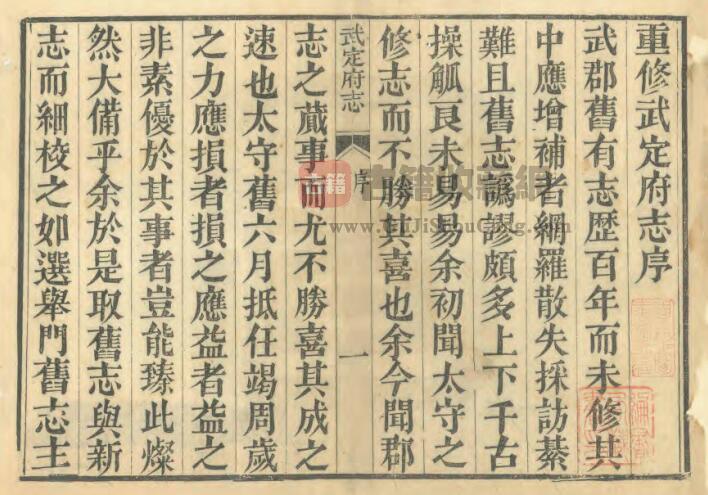 重修武定府志序
武郡舊有志歴百年而未修其
中應增補者網羅散失採訪綦
難且舊志譌謬頗多上下千古
操觚良未易易余初聞太守之
修志而不勝其喜也余今聞郡
武定府志
序
一
志之蕆事而尤不勝喜其成之
速也太守舊六月抵任竭周歲
之力應損者損之應益者益之
非素優於其事者豈能臻此燦
然大備乎余於是取舊志與新
志而細校之如選舉門舊志主
古籍
古籍收藏網
www.GuJiShouCang.com